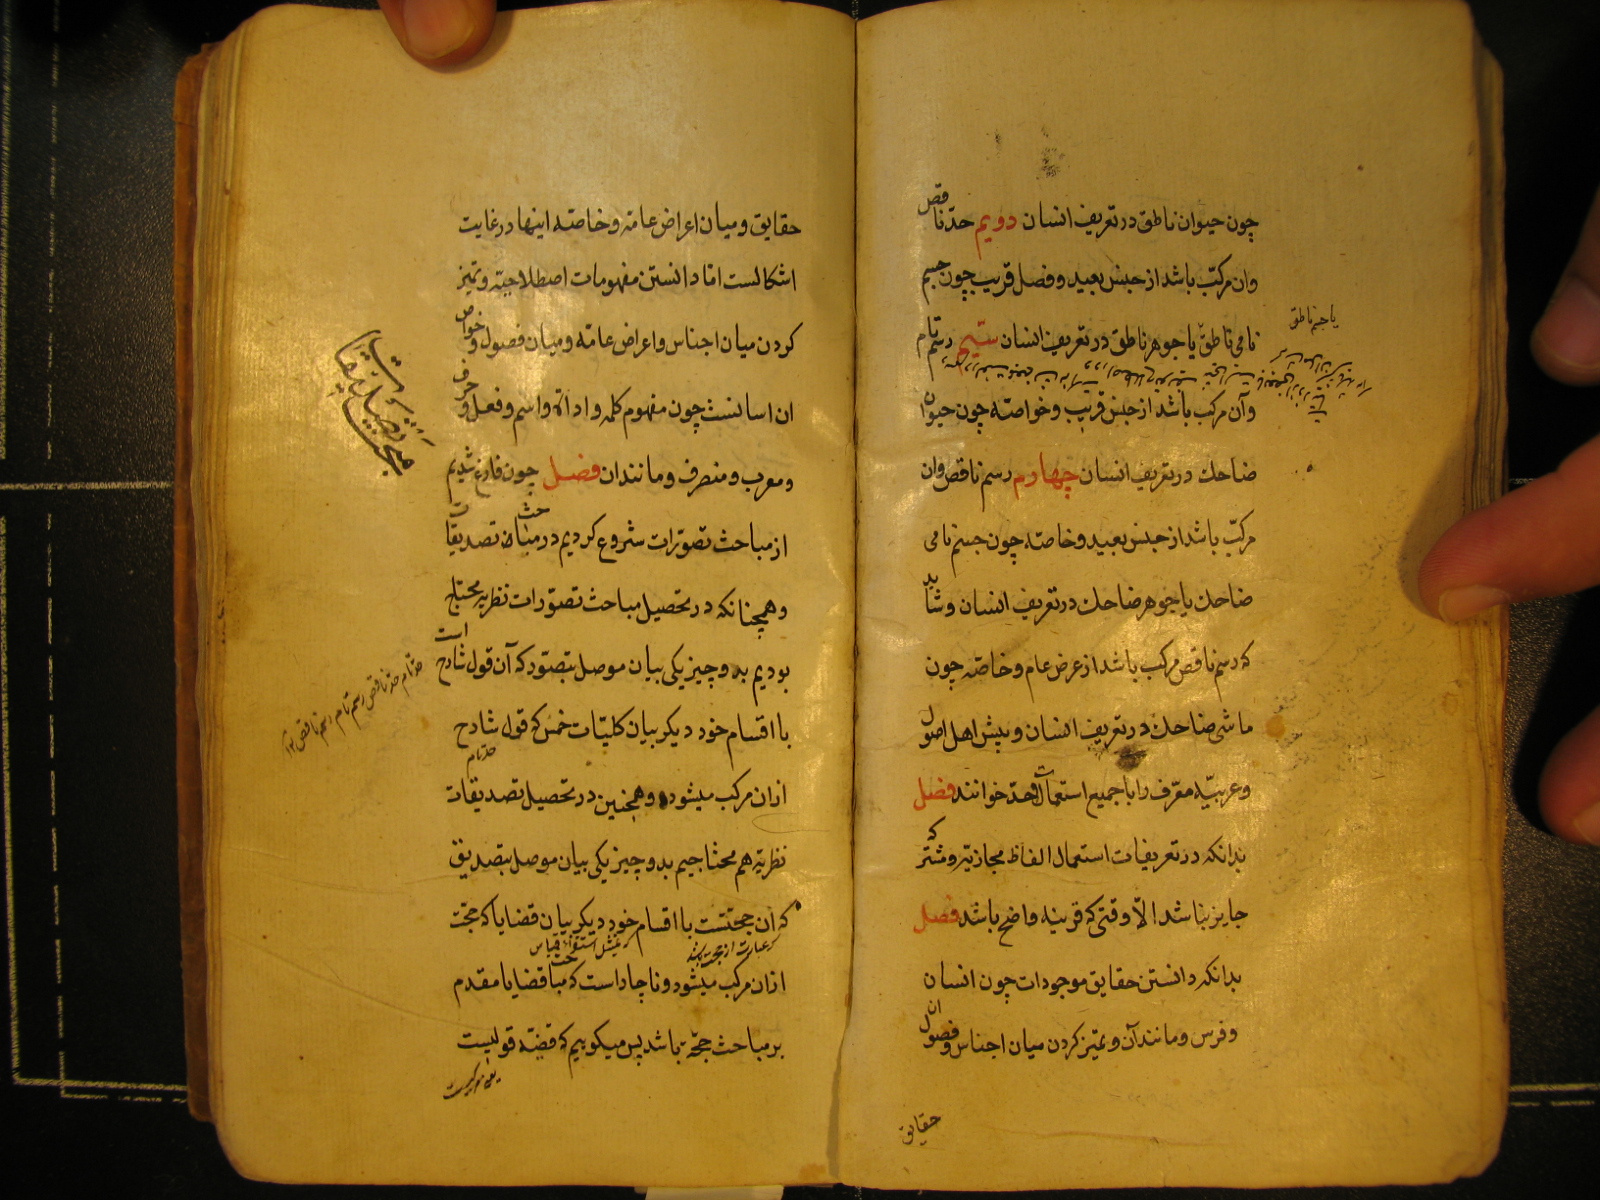 چون حیوان ناطق در تعریف انسان دویم حدّ ناقص
وان مرکب باشد از جنس بعید و فصل قریب چون جسم
نامی ناطق یا جوهر ناطق در تعریف انسان سیّم رسم تام
یا جسم ناطق
وآن مرکب باشد از جنس قریب و خواصّه چون حیوان
ضاحك در تعریف انسان چهارم رسم ناقص وان
مرکّب باشد از جنس بعید و خاصّه چون جسم نامی
ضاحك یا جوهر ضاحك در تعریف انسان و شاید
که رسم ناقص مرکب باشد از عرض عام و خاصّه چون
ماشی ضاحك در تعریف انسان و پیش اهل اصول
و عربیّه معّرف را با جمیع استعمالات حدّ خوانند فصل
بدانکه در تعریفات استعمال الفاظ مجازیّه و مشترکه
جایز نباشد الّا وقتی که قرینه واضح باشد فصل
بدانکه دانستن حقایق موجودات چون انسان
و فرس و مانند آن و تمیز کردن میان اجناس و فصول ان
حقایق
حقایق و میان اعراض عامّه و خاصّه اینها در غایت
اشکالست امّا دانستن مفهومات اصطلاحیّه و تمیز
کردن میان اجناس و اعراض عامّه و میان فصول و خواص
ان اسانست چون مفهوم کلمه و اداة و اسم و فعل و حرف
و معرب و منصرف و مانند ان فصل چون فارغ شدیم
از مباحث تصوّرات شروع کردیم در مباحث تصدیقات
و همچنانکه در تحصیل مباحث تصوّرات نظریّه محتاج
بودیم بدو چیز یکی بیان موصل بتصوّر که آن قول شارح است
با اقسام خود دیکر بیان کلیّات خمس که قول شارح
حدّ تام حدّ ناقص رسم تام رسم ناقص
حدّ تام
ازان مرکب میشود و همچنین در تحصیل تصدیقات
نظریّه هم محتاجیم بدو چیز یکی بیان موصل بتصدیق
که آن حجّتست با اقسام خود دیکر بیان قضایا که حجّت
که عبارت از حجت باشد
تمثیل استقراء قیاس
ازان مرکب میشود و ناچار است که مباحث قضایا مقدم
بر مباحث حجّة باشد پس میکوییم که قضیّه قولیست
یعنی مرکبست